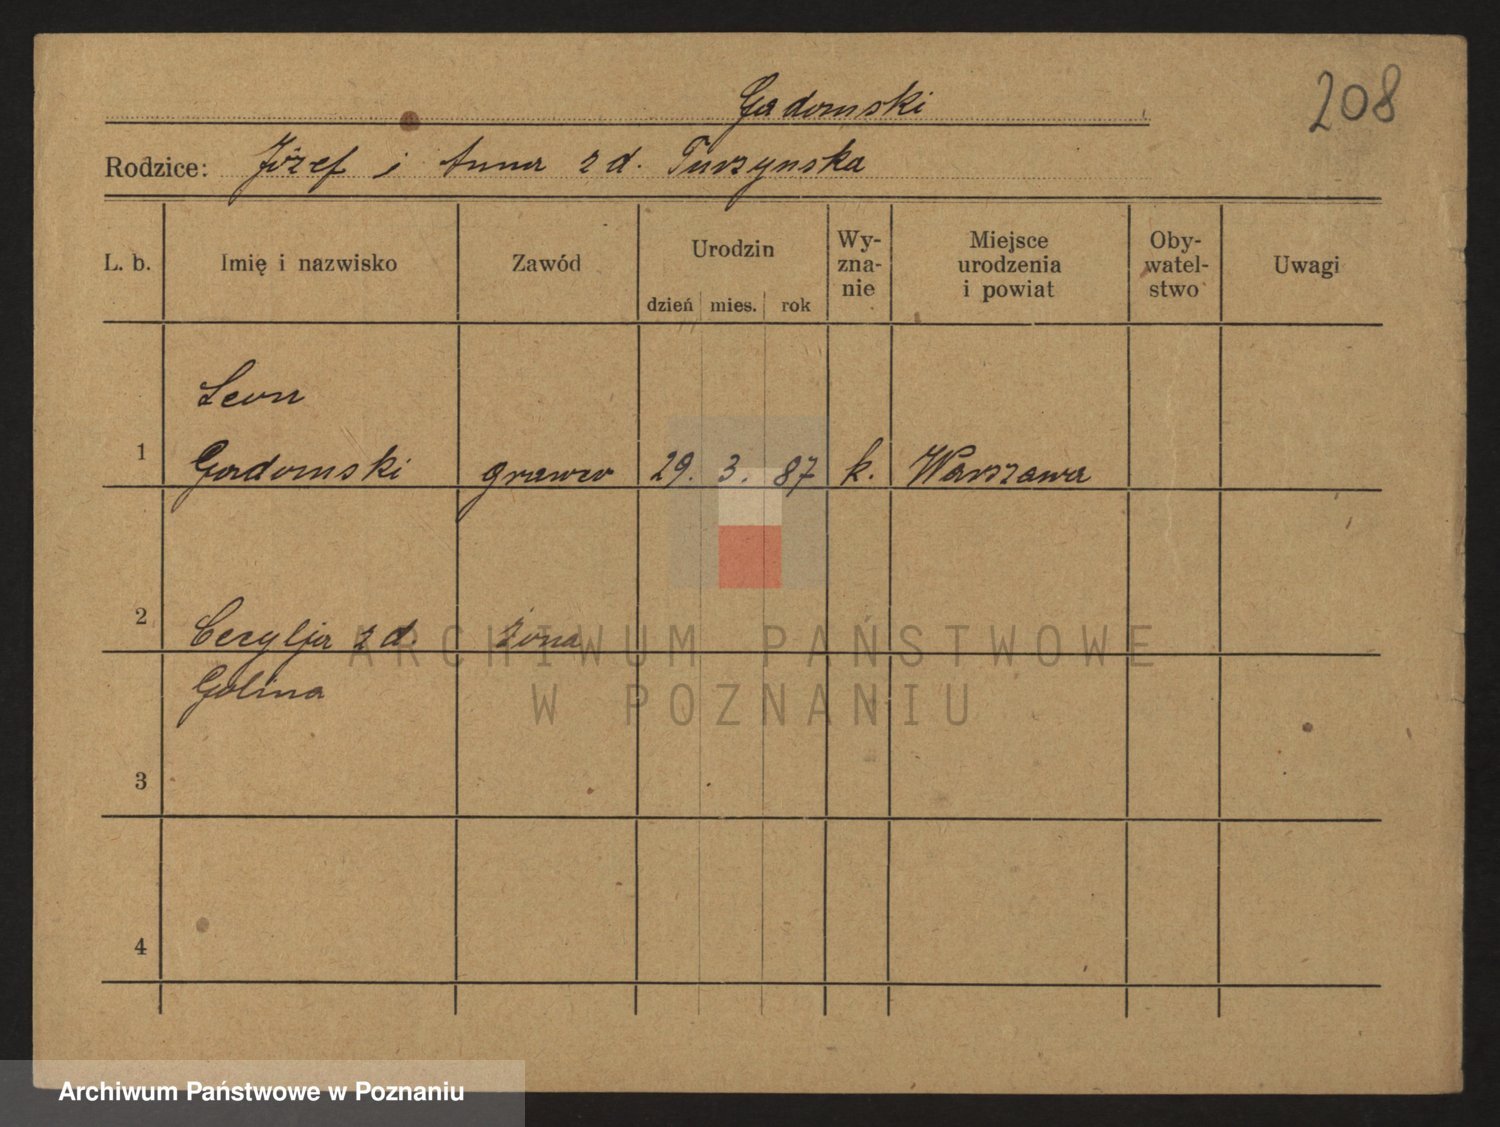 Gadomski
208
Rodzice: Józef i Anna z d. Turzynska
L. b. Imię i nazwisko Zawód Urodzin dzień mies. rok Wy-zna-nie Miejsce urodzenia i powiat Oby-watel-stwo Uwagi
Leon
1 Gadomski grawer 29. 3. 87 k. Warszawa
2 Cecylja z d żona
Golina
3
4
ARCHIWUM PAŃSTWOWE
W POZNANIU
Archiwum Państwowe w Poznaniu